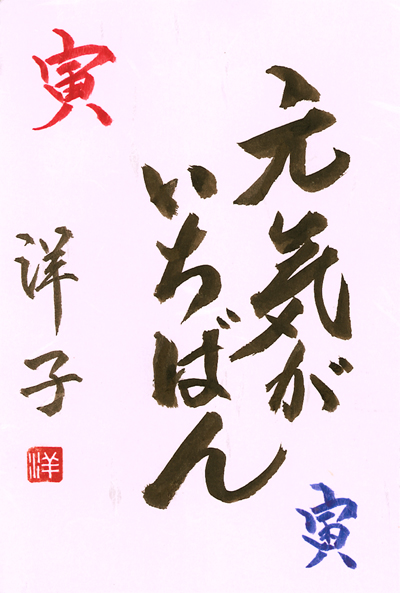 元気が
いちばん
寅
寅
洋子
洋